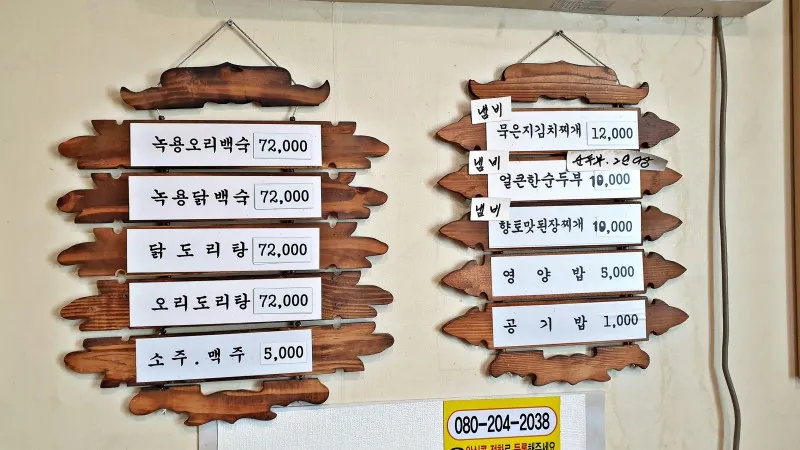 녹용오리백숙 72,000
녹용닭백숙 72,000
닭도리탕 72,000
오리도리탕 72,000
소주.맥주 5,000
냄비
묵은지김치찌개 12,000
냄비
얼큰한순두부 10,000
냄비
향토맛된장찌개 10,000
영양밥 5,000
공기밥 1,000
080-204-2038